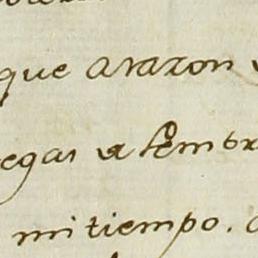 que araron
egar a sembr
mi tiempo.